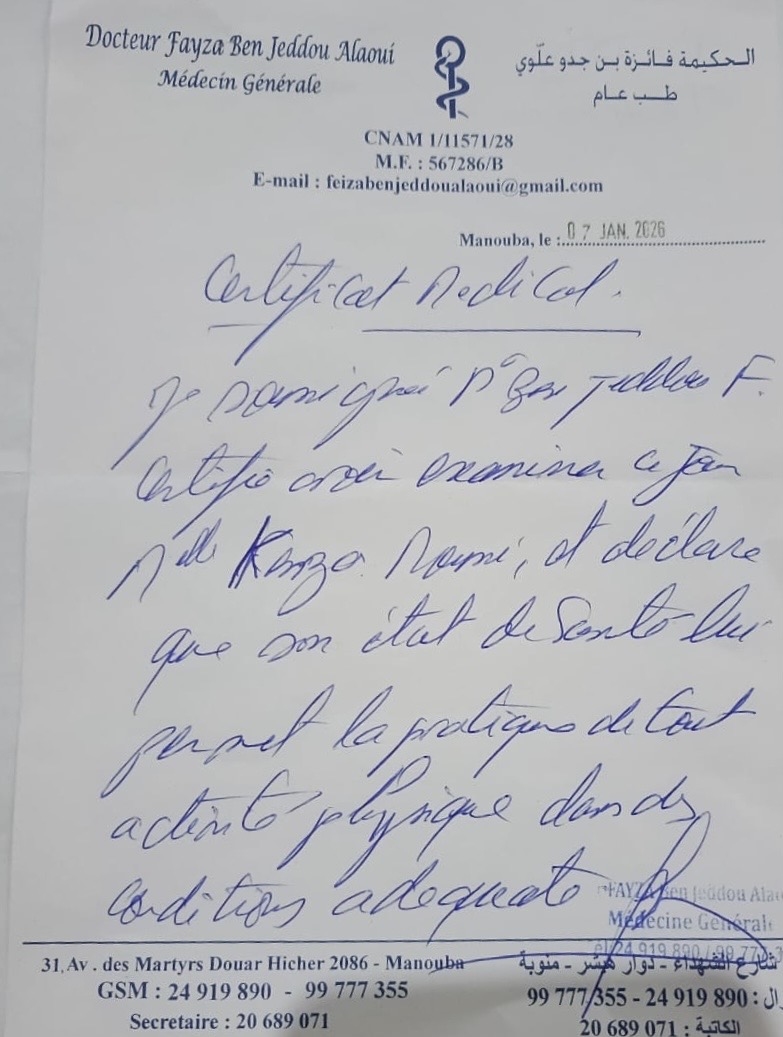 Docteur Fayza Ben Jeddou Alaoui
Médecin Générale
الحكيمة فائزة بن جدو علّوي
طب عام
CNAM 1/11571/28
M.F. : 567286/B
E-mail : feizabenjeddoualaoui@gmail.com
Manouba, le : 07 JAN. 2026
Certificat Medical.
Je soussigné Dr Ben Jeddou F.
Certifie avoir examiner ce jour
Mlle Kenza, et déclare
que son état de Santé lui
permet la pratique de tout
activité physique dans des
conditions adequate
FAYZA Ben Jeddou Alao
Médecine Générale
31, Av. des Martyrs Douar Hicher 2086 - Manouba
شارع الشهداء - دوار هيشر - منوبة
GSM : 24 919 890 - 99 777 355
ال : 24 919 890 - 99 777 355
Secretaire : 20 689 071
الكاتبة : 20 689 071